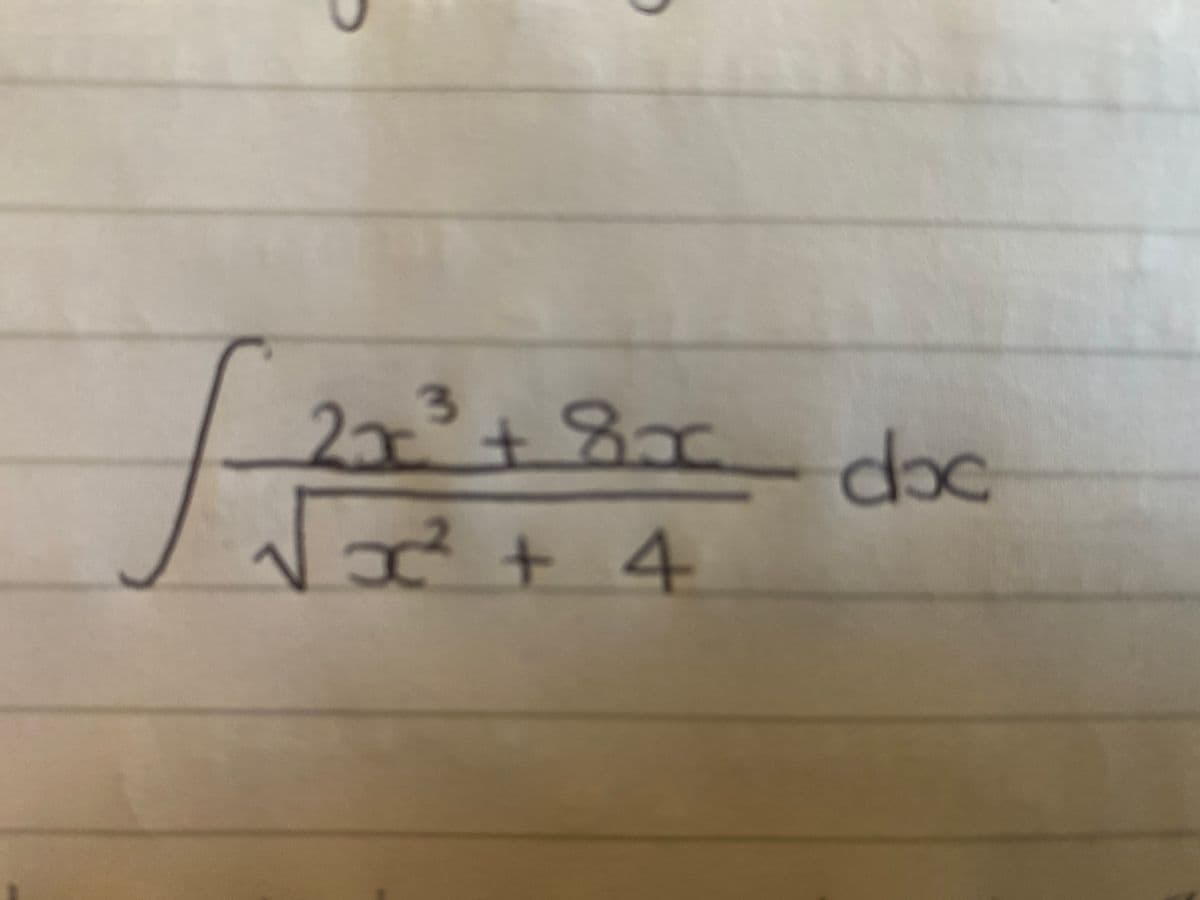 ∫ (2x³ + 8x) / √(x² + 4) dx